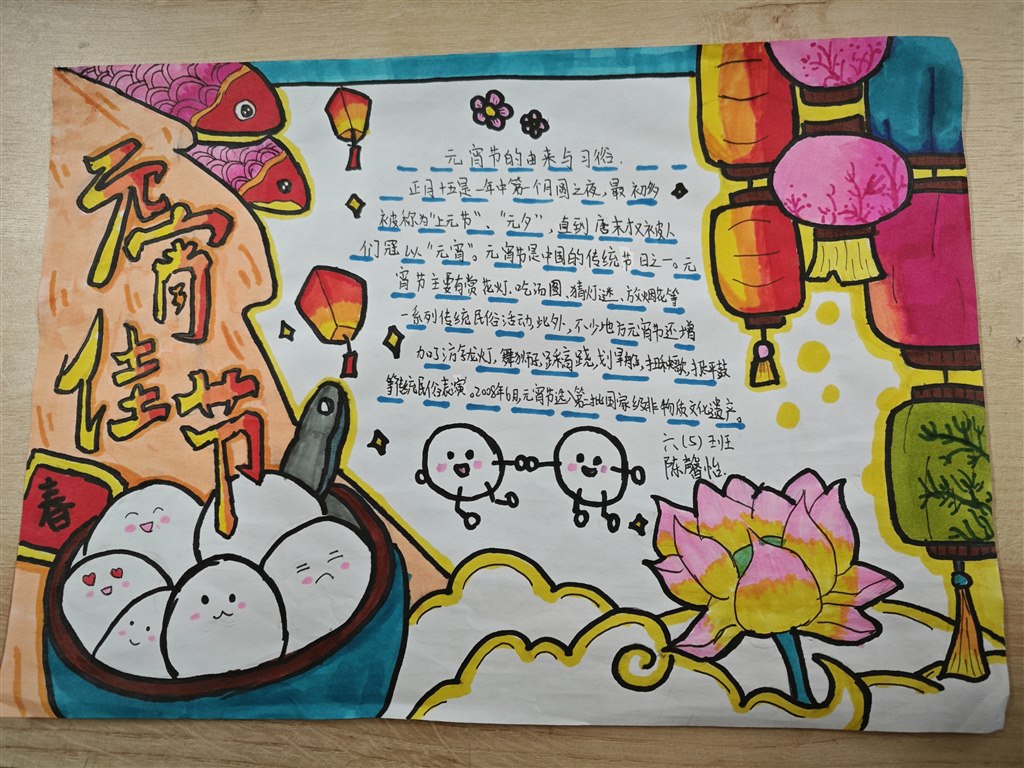 元宵佳节
春
元宵节的由来与习俗.
正月十五是一年中第一个月圆之夜,最初多
被称为“上元节”、“元夕”,直到唐末才被人
们冠以“元宵”。元宵节是中国的传统节日之一。元
宵节主要有赏花灯.吃汤圆.猜灯谜、放烟花等
一系列传统民俗活动,此外,不少地方元宵节还增
加了游龙灯,舞狮,踩高跷,划旱船,扭秧歌,打太平鼓
等传统民俗表演。2008年6月元宵节选入第二批国家级非物质文化遗产。
六(5)班
陈馨怡.